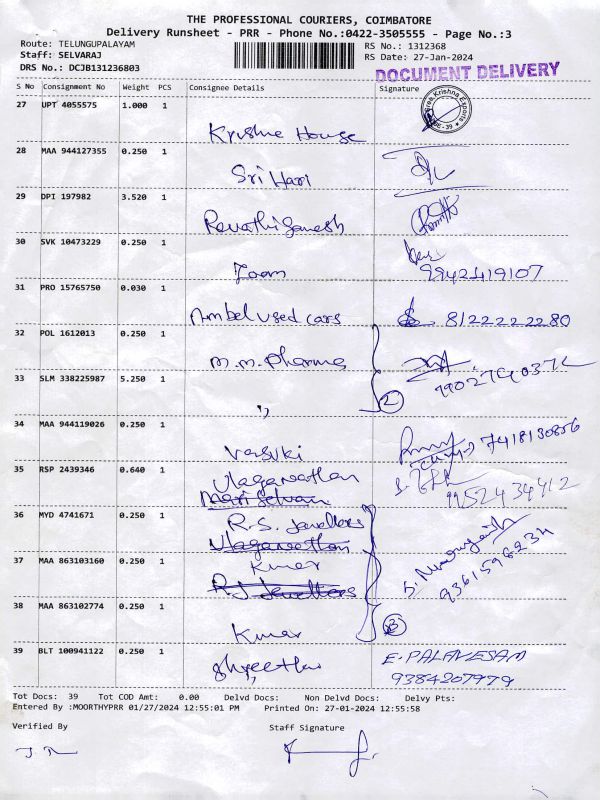 THE PROFESSIONAL COURIERS, COIMBATORE
Delivery Runsheet - PRR - Phone No.:0422-3505555 - Page No.:3
Route: TELUNGUPALAYAM RS No.: 1312368
Staff: SELVARAJ RS Date: 27-Jan-2024
DRS No.: DCJB131236803
DOCUMENT DELIVERY
S No Consignment No Weight PCS Consignee Details Signature
27 UPT 4055575 1.000 1
Krishna House
28 MAA 944127355 0.250 1
Sri Hari
29 DPI 197982 3.520 1
Revathi Ganesh
30 SVK 10473229 0.250 1
Zoom 9942419107
31 PRO 15765750 0.030 1
Ambel used cars 8122222280
32 POL 1612013 0.250 1
M.M. Pharma
33 SLM 338225987 5.250 1
" 2
34 MAA 944119026 0.250 1
Vasuki 7418130856
35 RSP 2439346 0.640 1
Ulaganathan
Mariselvan 9952434412
36 MYD 4741671 0.250 1
R.S. Jewellers
Ulaganathan
37 MAA 863103160 0.250 1
Kumar
R.S Jewellers 9361596234
38 MAA 863102774 0.250 1
Kumar 3
39 BLT 100941122 0.250 1
E. PALANESAM
9384207979
Tot Docs: 39 Tot COD Amt: 0.00 Delvd Docs: Non Delvd Docs: Delvy Pts:
Entered By :MOORTHYPRR 01/27/2024 12:55:01 PM Printed On: 27-01-2024 12:55:58
Verified By Staff Signature